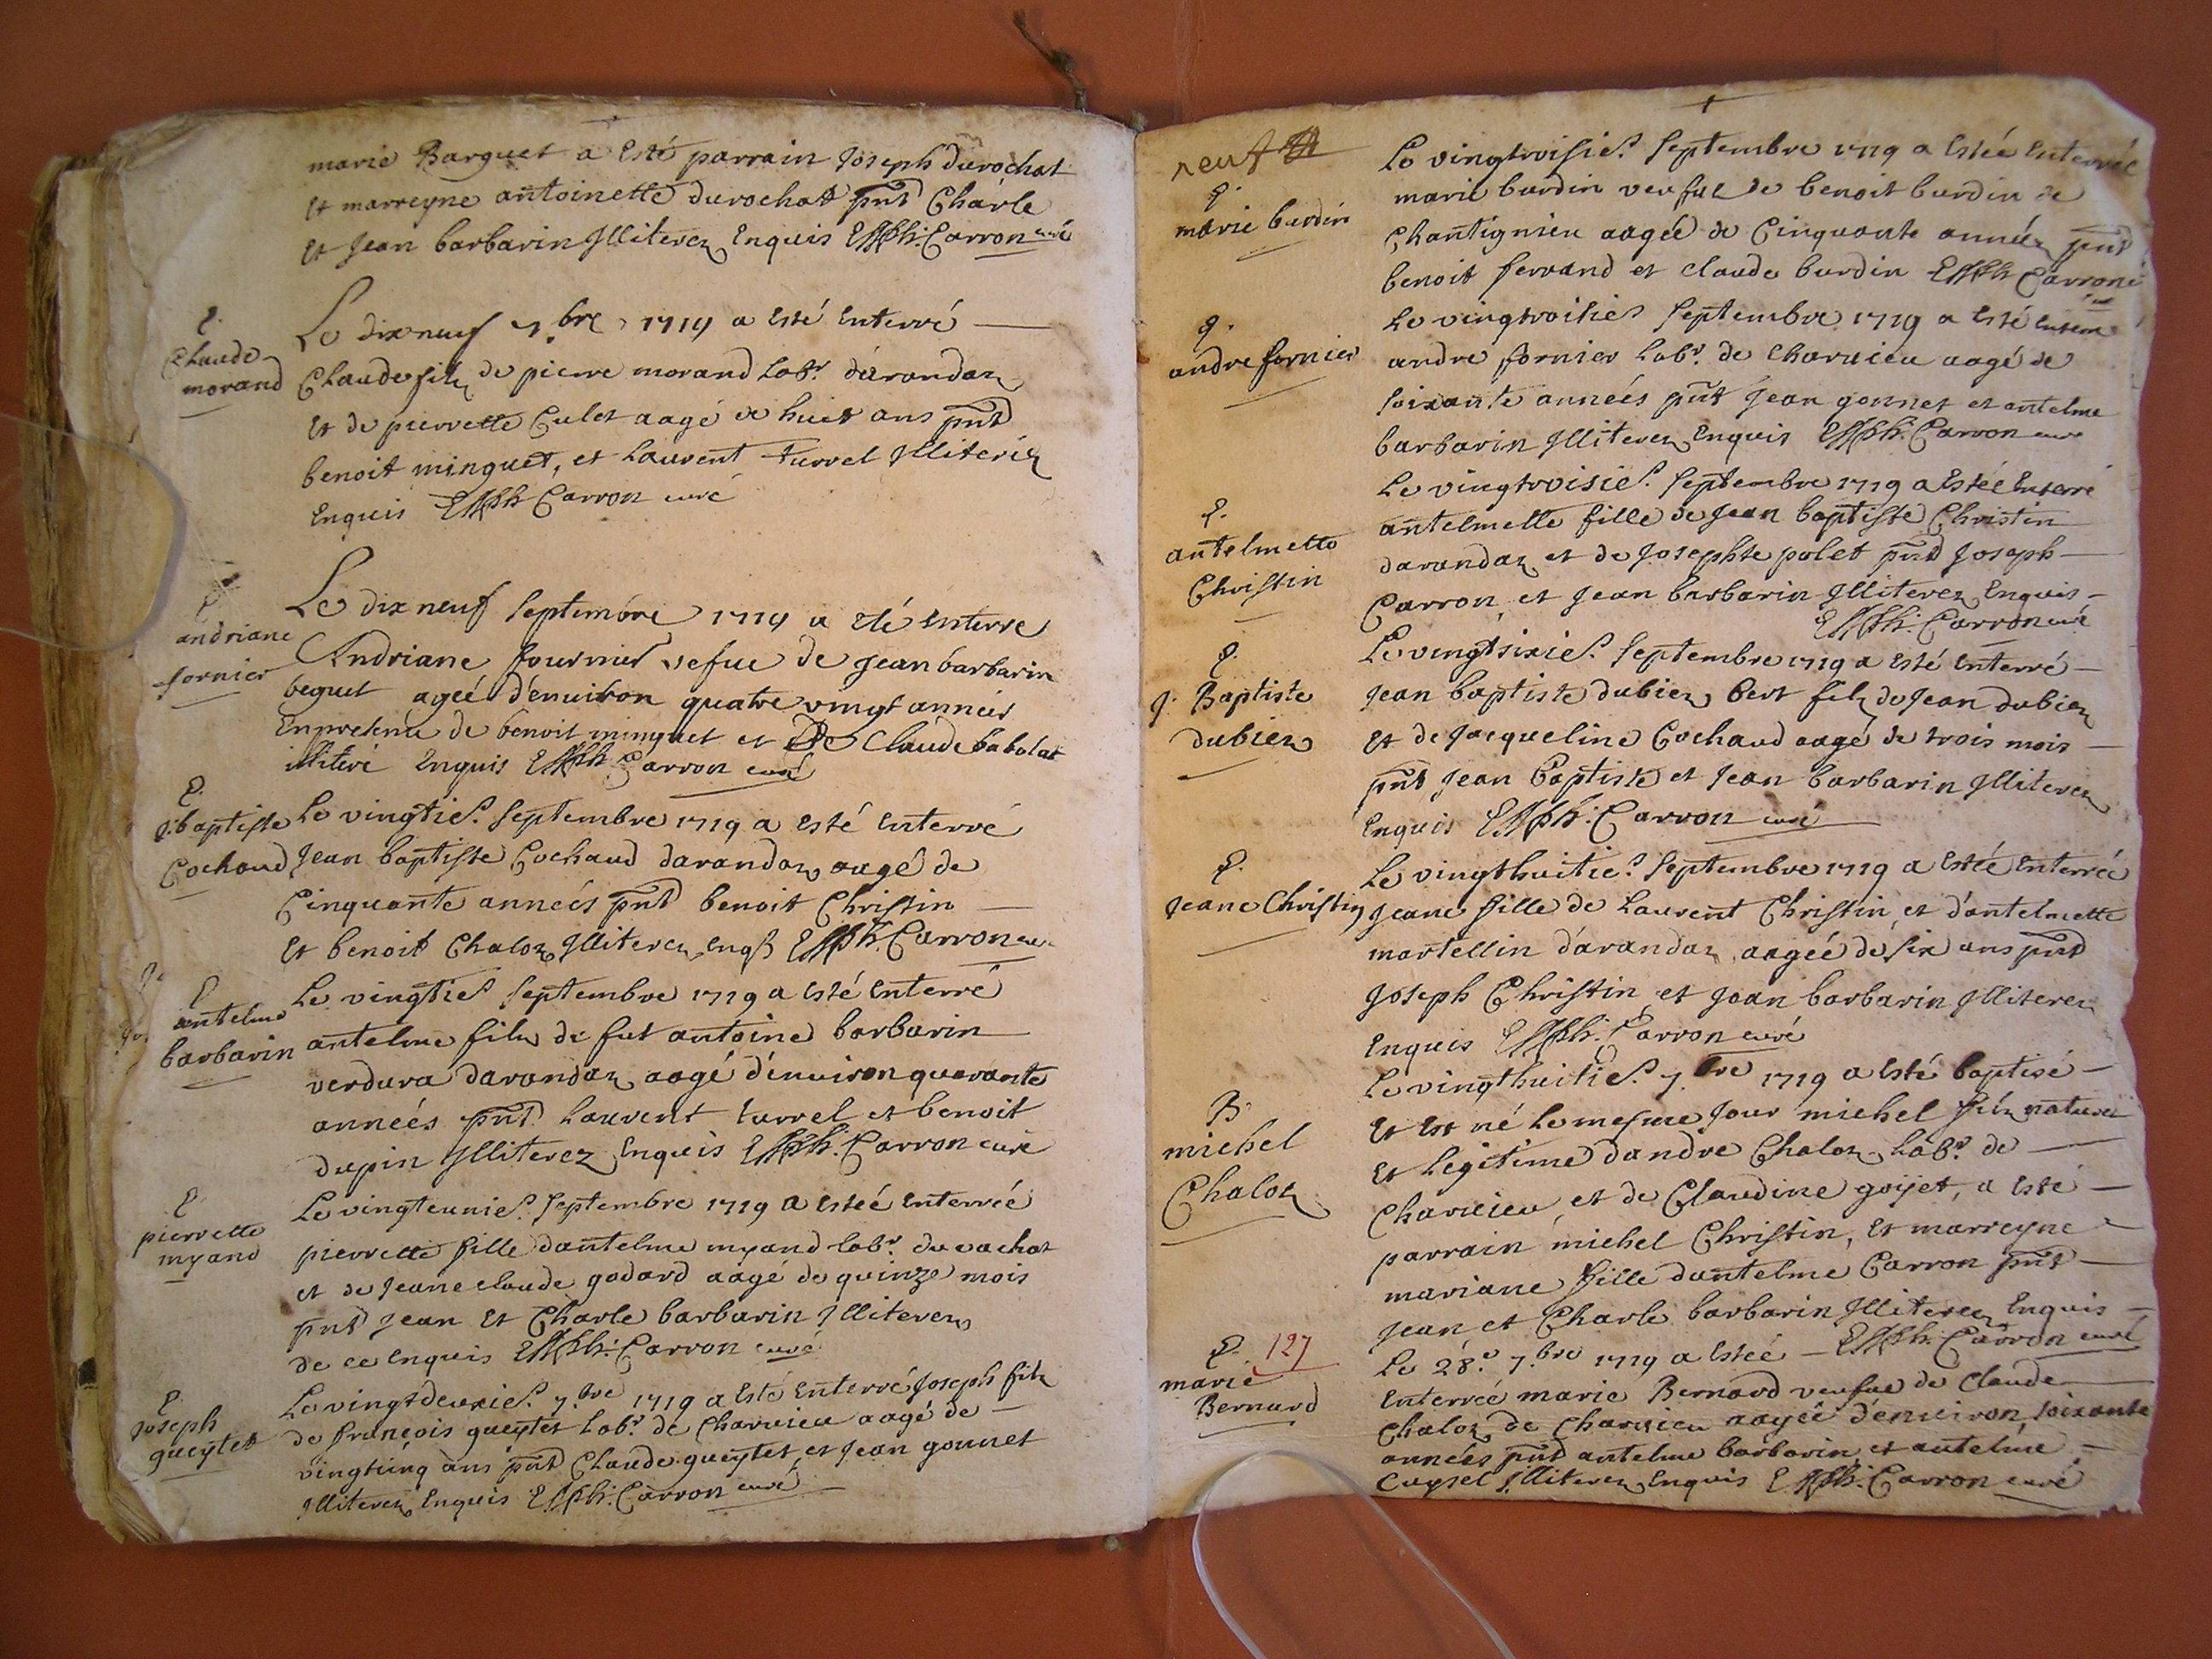 marie Barquet a Esté parrain Joseph durochat
et marreyne antoinette durochat pnt Charle
et Jean barbarin Illiterez Enquis Carron curé
E.
Claude
morand
Le dix neuf 7.bre 1719 a Esté Enterré
Claude filz de pierre morand labr. darandaz
et de pierrette Culet aagé de huit ans pnt
benoit minguet, et Laurent turrel Illiteréz
Enquis Carron curé
E
andriane
fornier
Le dix neuf Septembre 1719 a eté enterre
Andriane fournier vefue de Jean barbarin
beguet ageé d'enuiron quatre vingt années
En presence de benoit minguet et De Claude babolat
illiteré Enquis Carron curé
E.
J. baptiste
Cochaud
Le vingtie. Septembre 1719 a esté Enterré
Jean baptiste Cochaud darandaz aagé de
Cinquante années pnt benoit Christin
Et benoit Chaloz Illiterez Carron
E
antelme
barbarin
Le vingtie. Septembre 1719 a Esté Enterré
antelme filz de fut antoine barbarin
verdura darandaz aagé d'enuiron quarante
années pnt. Laurent turrel et benoit
dupin Illiterez Enquis Carron curé
E
pierrette
myand
Le vingteunie. Septembre 1719 a Esteé Enterreé
pierrette fille dantelme myand labr. du
et de Jeane claude godard aagé de quinze mois
pnt Jean et Charle barbarin Illiterez
de ce Enquis Carron curé
E.
Joseph
gueytet
Le vingtdeuxie. 7.bre 1719 a Esté Enterré Joseph filz
de françois gueytet labr. de Charuieu aagé de
vingtcinq ans pnt Claude gueytet, et Jean gonnet
Illiterez Enquis Carron curé
neuf
E.
marie burdin
Le vingtroisie. Septembre 1719 a Estée Enterrée
marie burdin veufue de benoit burdin de
Chantignieu aageé de Cinquante année pnt
benoit ferrand et claude burdin Carron
E.
andre fornier
Le vingtroisie. Septembre 1719 a Esté
andre fornier labr. de Charuieu aagé de
soixante années pnt Jean gonnet et antelme
barbarin Illiterez Enquis Carron curé
E.
antelmette
Christin
Le vingtroisie. Septembre 1719 a Estée Enterré
antelmette fille de Jean baptiste Christin
darandaz et de Josephte polet pnt Joseph
Carron et Jean barbarin Illiterez Enquis
Carron curé
E.
J. Baptiste
dubiez
Le vingtsixie. Septembre 1719 a Esté Enterré
Jean baptiste dubiez bert filz de Jean dubiez
et de Jacqueline Cochaud aagé de trois mois
pnt Jean Baptiste et Jean barbarin Illiterez
Enquis Carron curé
E.
Jeane Christin
Le vingthuitie. Septembre 1719 a Estée Enterrée
Jeane fille de Laurent Christin et d'antelmette
martellin d'arandaz aageé de six ans pnt
Joseph Christin et Jean barbarin Illiterez
Enquis Carron curé
B
michel
Chaloz
Le vingthuitie. 7.bre 1719 a Esté baptisé
Et Est né le mesme Jour michel filz naturel
et Legitime dandre Chaloz labr. de
Charuieu et de Claudine goyet, a Esté
parrain michel Christin, et marreyne
mariane fille dantelme Carron pnt
Jean et Charle barbarin Illiterez Enquis
Carron curé
E. 127
marie
Bernard
Le 28.e 7.bre 1719 a Esteé
Enterreé marie Bernard veufue de Claude
Chaloz de Charuieu aageé d'enuiron soixante
années pnt antelme barbarin et antelme
Cuysel Illiterez Enquis Carron curé